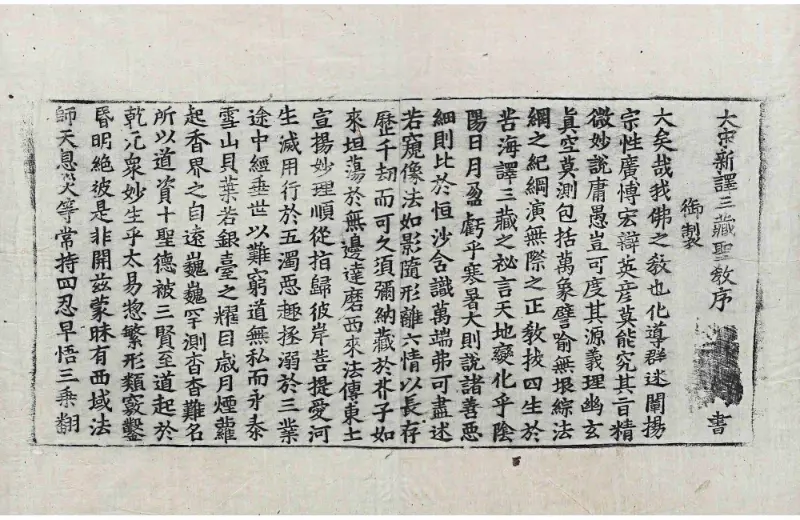 大宋新譯三藏聖教序
書
御製
大矣哉我佛之教也化導群迷闡揚
宗性廣博宏辯英彥莫能究其旨精
微妙說庸愚豈可度其源義理幽玄
真空莫測包括萬象譬喻無垠綜法
網之紀綱演無際之正教拔四生於
苦海譯三藏之祕言天地變化乎陰
陽日月盈虧乎寒暑大則說諸善惡
細則比於恒沙含識萬端弗可盡述
若窺像法如影隨形離六情以長存
歷千劫而可久須彌納藏於芥子如
來坦蕩於無邊達磨西來法傳東土
宣揚妙理順從指歸彼岸菩提愛河
生滅用行於五濁惡趣拯溺於三業
途中經垂世以難窮道無私而永泰
雪山貝葉若銀臺之耀目歲月煙蘿
起香界之自遠巍巍罕測杳杳難名
所以道資十聖德被三賢至道起於
乾元衆妙生乎太易惣繁形類竅鑿
昏明絕彼是非開茲蒙昧有西域法
師天息灾等常持四忍早悟三乗翻